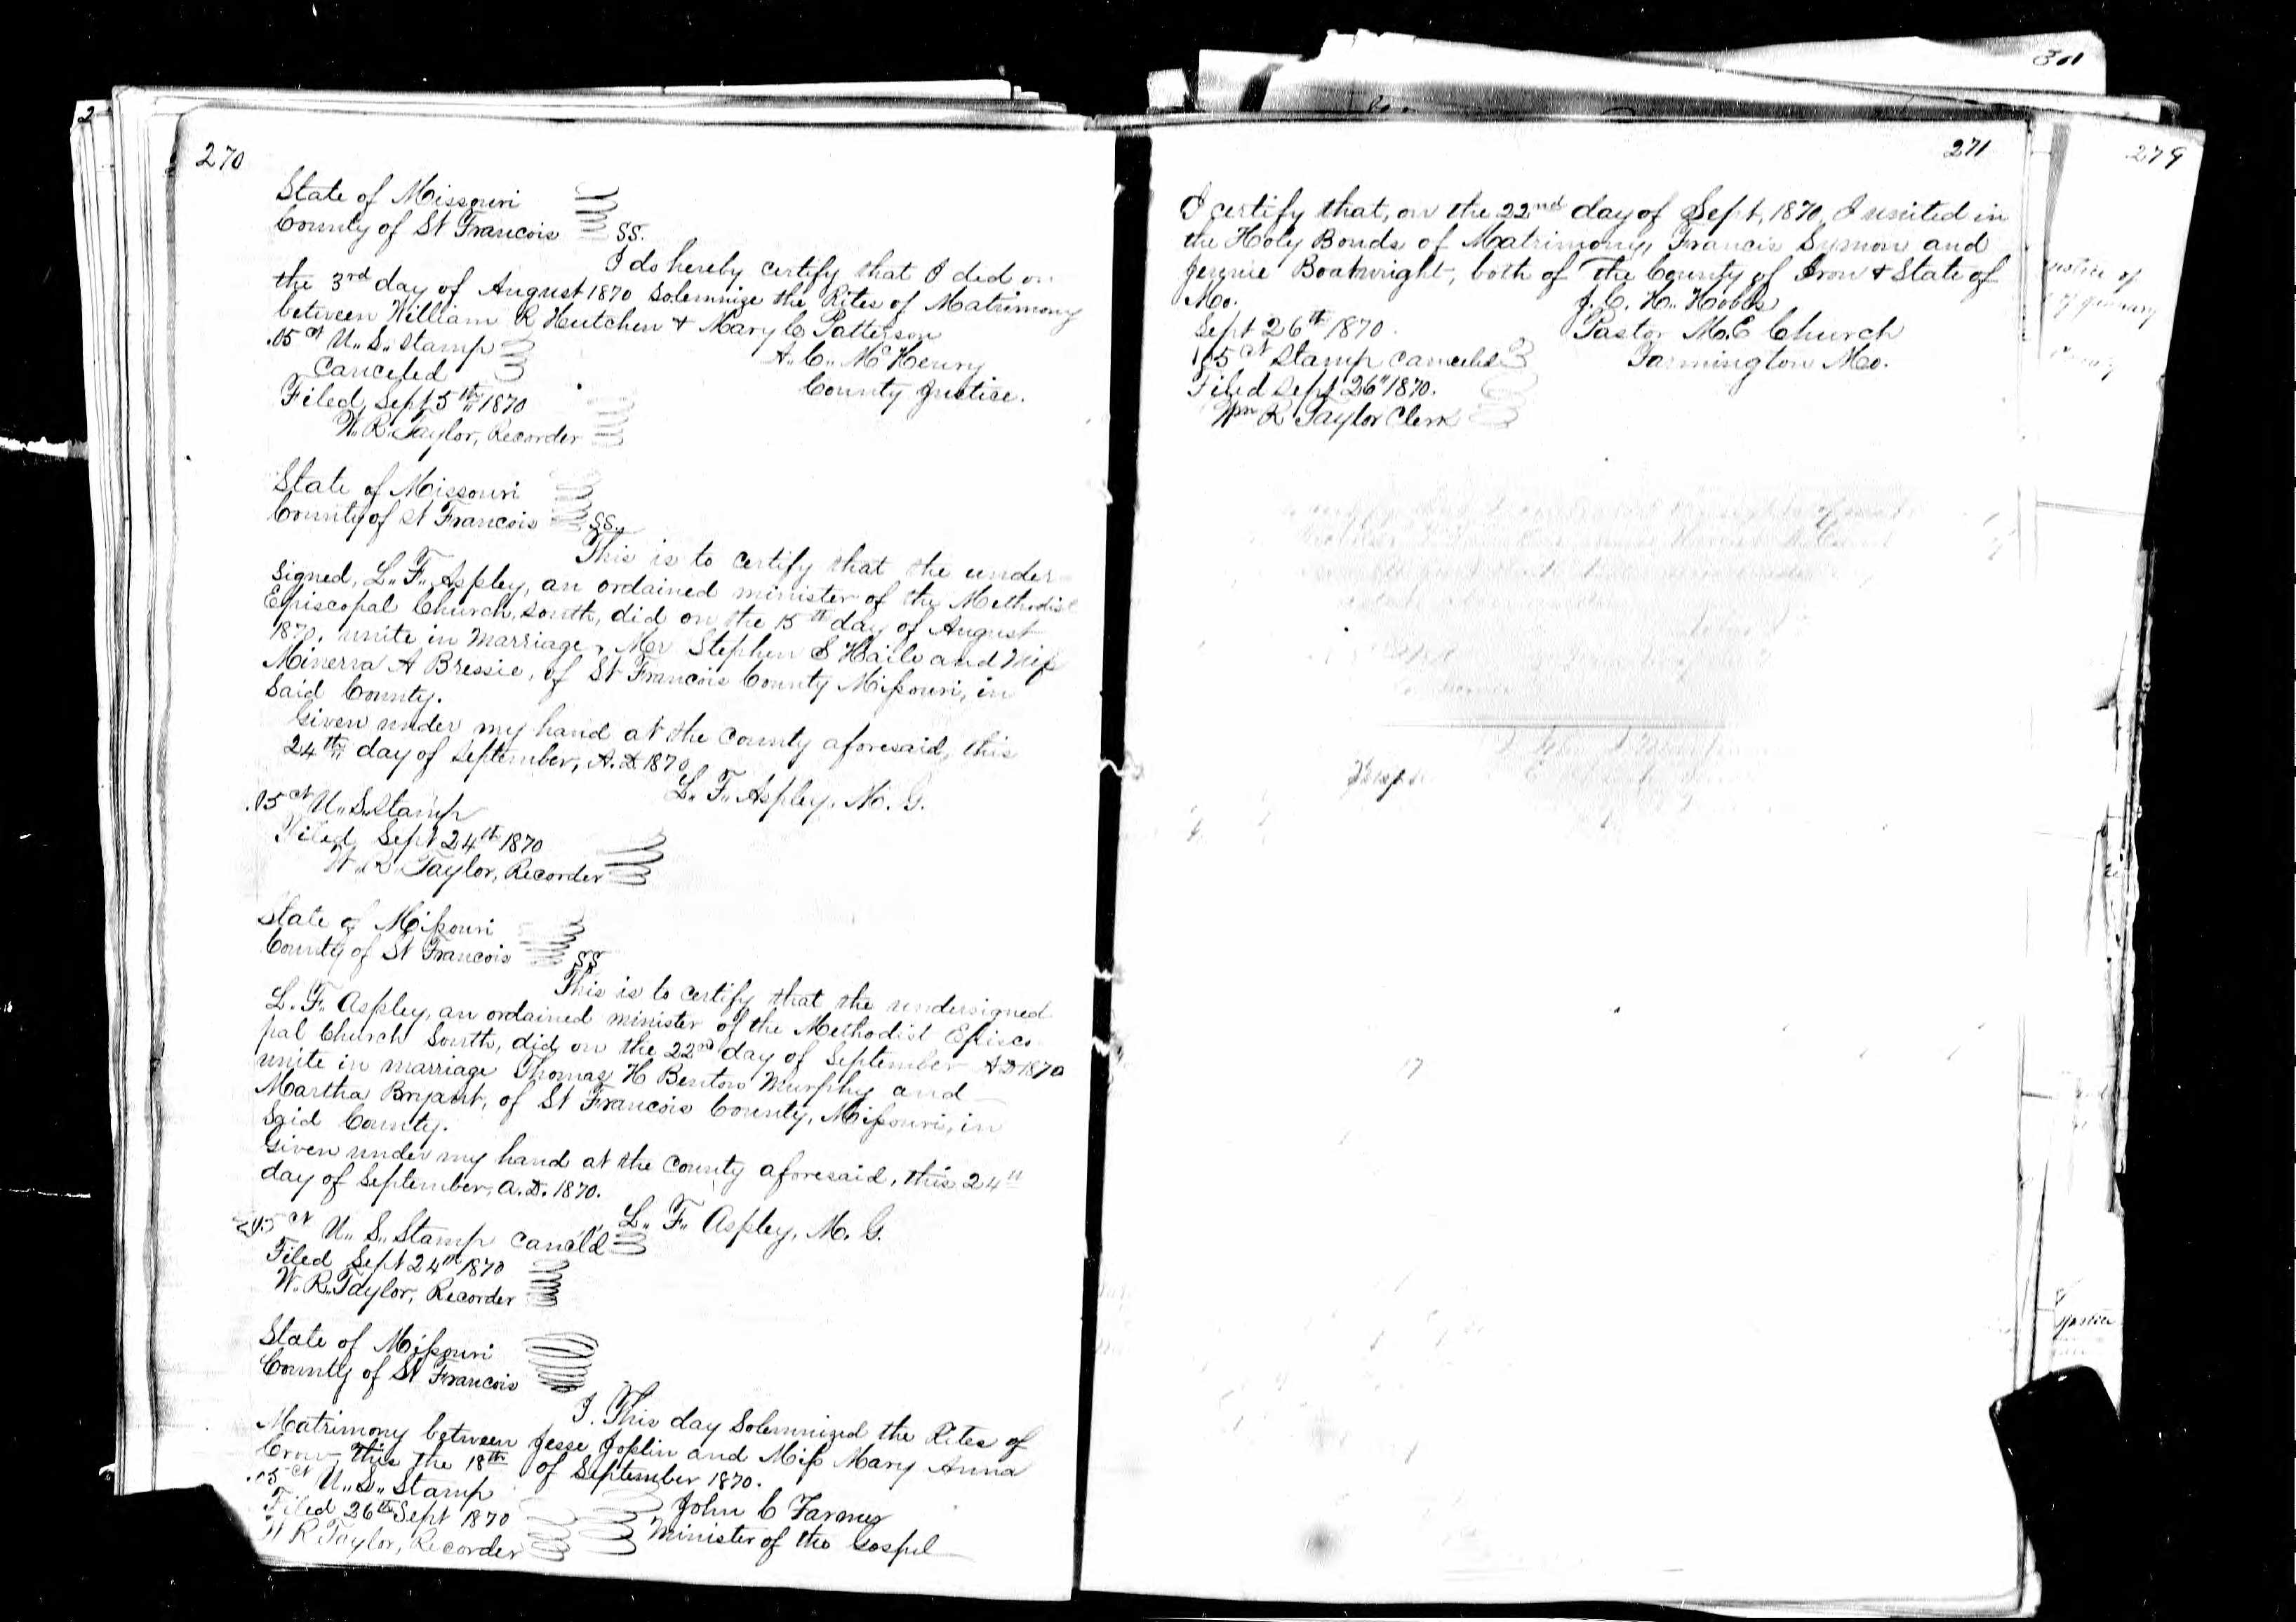 270
State of Missouri
County of St Francois SS.
I do hereby certify that I did on
the 3rd day of August 1870 Solemnize the Rites of Matrimony
between William R Hutchen & Mary C Patterson
.05 ct U.. S.. Stamp
Canceled
A.. C.. McHenry
County Justice.
Filed, Sept 5th 1870
W. R. Taylor, Recorder
State of Missouri
County of St Francois SS.
This is to certify that the under
signed, L.. F.. Aspley, an ordained minister of the Methodist
Episcopal Church, South, did on the 15th day of August
1870, unite in Marriage, Mr Stephen S Haile and Miss
Minerva A Bressie, of St Francois County Missouri, in
Said County.
Given under my hand at the County aforesaid, this
24th day of September, A.D. 1870
L.. F.. Aspley, M. G.
.05 ct U.. S.. Stamp
Filed, Sept 24th 1870
W. R. Taylor, Recorder
State of Missouri
County of St Francois SS
This is to certify that the undersigned
L. F. Aspley, an ordained minister of the Methodist Episco
pal Church South, did on the 22nd day of September AD 1870
unite in marriage Thomas H Benton Murphy and
Martha Bryant, of St Francois County, Missouri, in
Said County.
Given under my hand at the County aforesaid, this 24th
day of September, A.D. 1870.
L.. F.. Aspley, M. G.
U.. S.. Stamp Canc'ld
Filed Sept 24th 1870
W.. R.. Taylor, Recorder
State of Missouri
County of St Francois
I. This day Solemnized the Rites of
Matrimony between Jesse Joplin and Miss Mary Anna
Crow, this the 18th of September 1870.
.05 ct U.. S.. Stamp
John C Farmer
Minister of the Gospel
Filed 26th Sept 1870
W R Taylor, Recorder
271
I certify that, on the 22nd day of Sept, 1870, I united in
the Holy Bonds of Matrimony, Francis Symon and
Jennie Boatwright, both of the County of Iron & State of
Mo.
J. C. H. Hobbs
Sept 26th 1870.
Pastor M.E Church
Farmington Mo.
5 ct Stamp canceled
Filed Sept 26" 1870.
Wm R Taylor Clerk
279
301